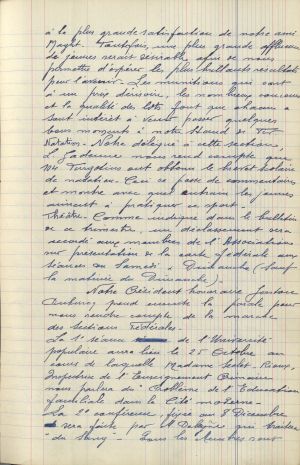 à la plus grande satisfaction de notre ami
Magnt. Toutefois, une plus grande affluence
de jeunes serait désirable afin de nous
permettre d'espérer les plus brillants résultats
pour l'avenir. Les munitions sont
à un prix dérisoire, les nombreux concours
et la qualité des lots font que chacun a
tout intérêt à venir passer quelques
bons moments à notre Stand de Tir
Natation - Notre délégué à cette section
nous rend compte que
104 ont obtenu le brevet scolaire
de natation. Ceci se passe de commentaires
et montre avec quel entrain les jeunes
aiment à pratiquer ce sport.
Théâtre. Comme indiqué dans le bulletin
de ce trimestre, un déclassement sera
accordé aux membres de l'Association
sur présentation de la carte fédérale aux
séances du Samedi, Dimanche (Sauf
la matinée du Dimanche).
Notre Président honoraire Gustave
prend ensuite la parole pour
nous rendre compte de la marche
des Sections Fédérales.
La 1° séance de l'Université
populaire aura lieu le 25 Octobre au
cours de laquelle Madame
Inspectrice de l'Enseignement
nous parlera du "Problème de l'Education
familiale dans la Cité moderne"
La 2° conférence, fixée au 8 Décembre
sera faite par M. qui traitera
"du Sang" - Tous les Membres sont